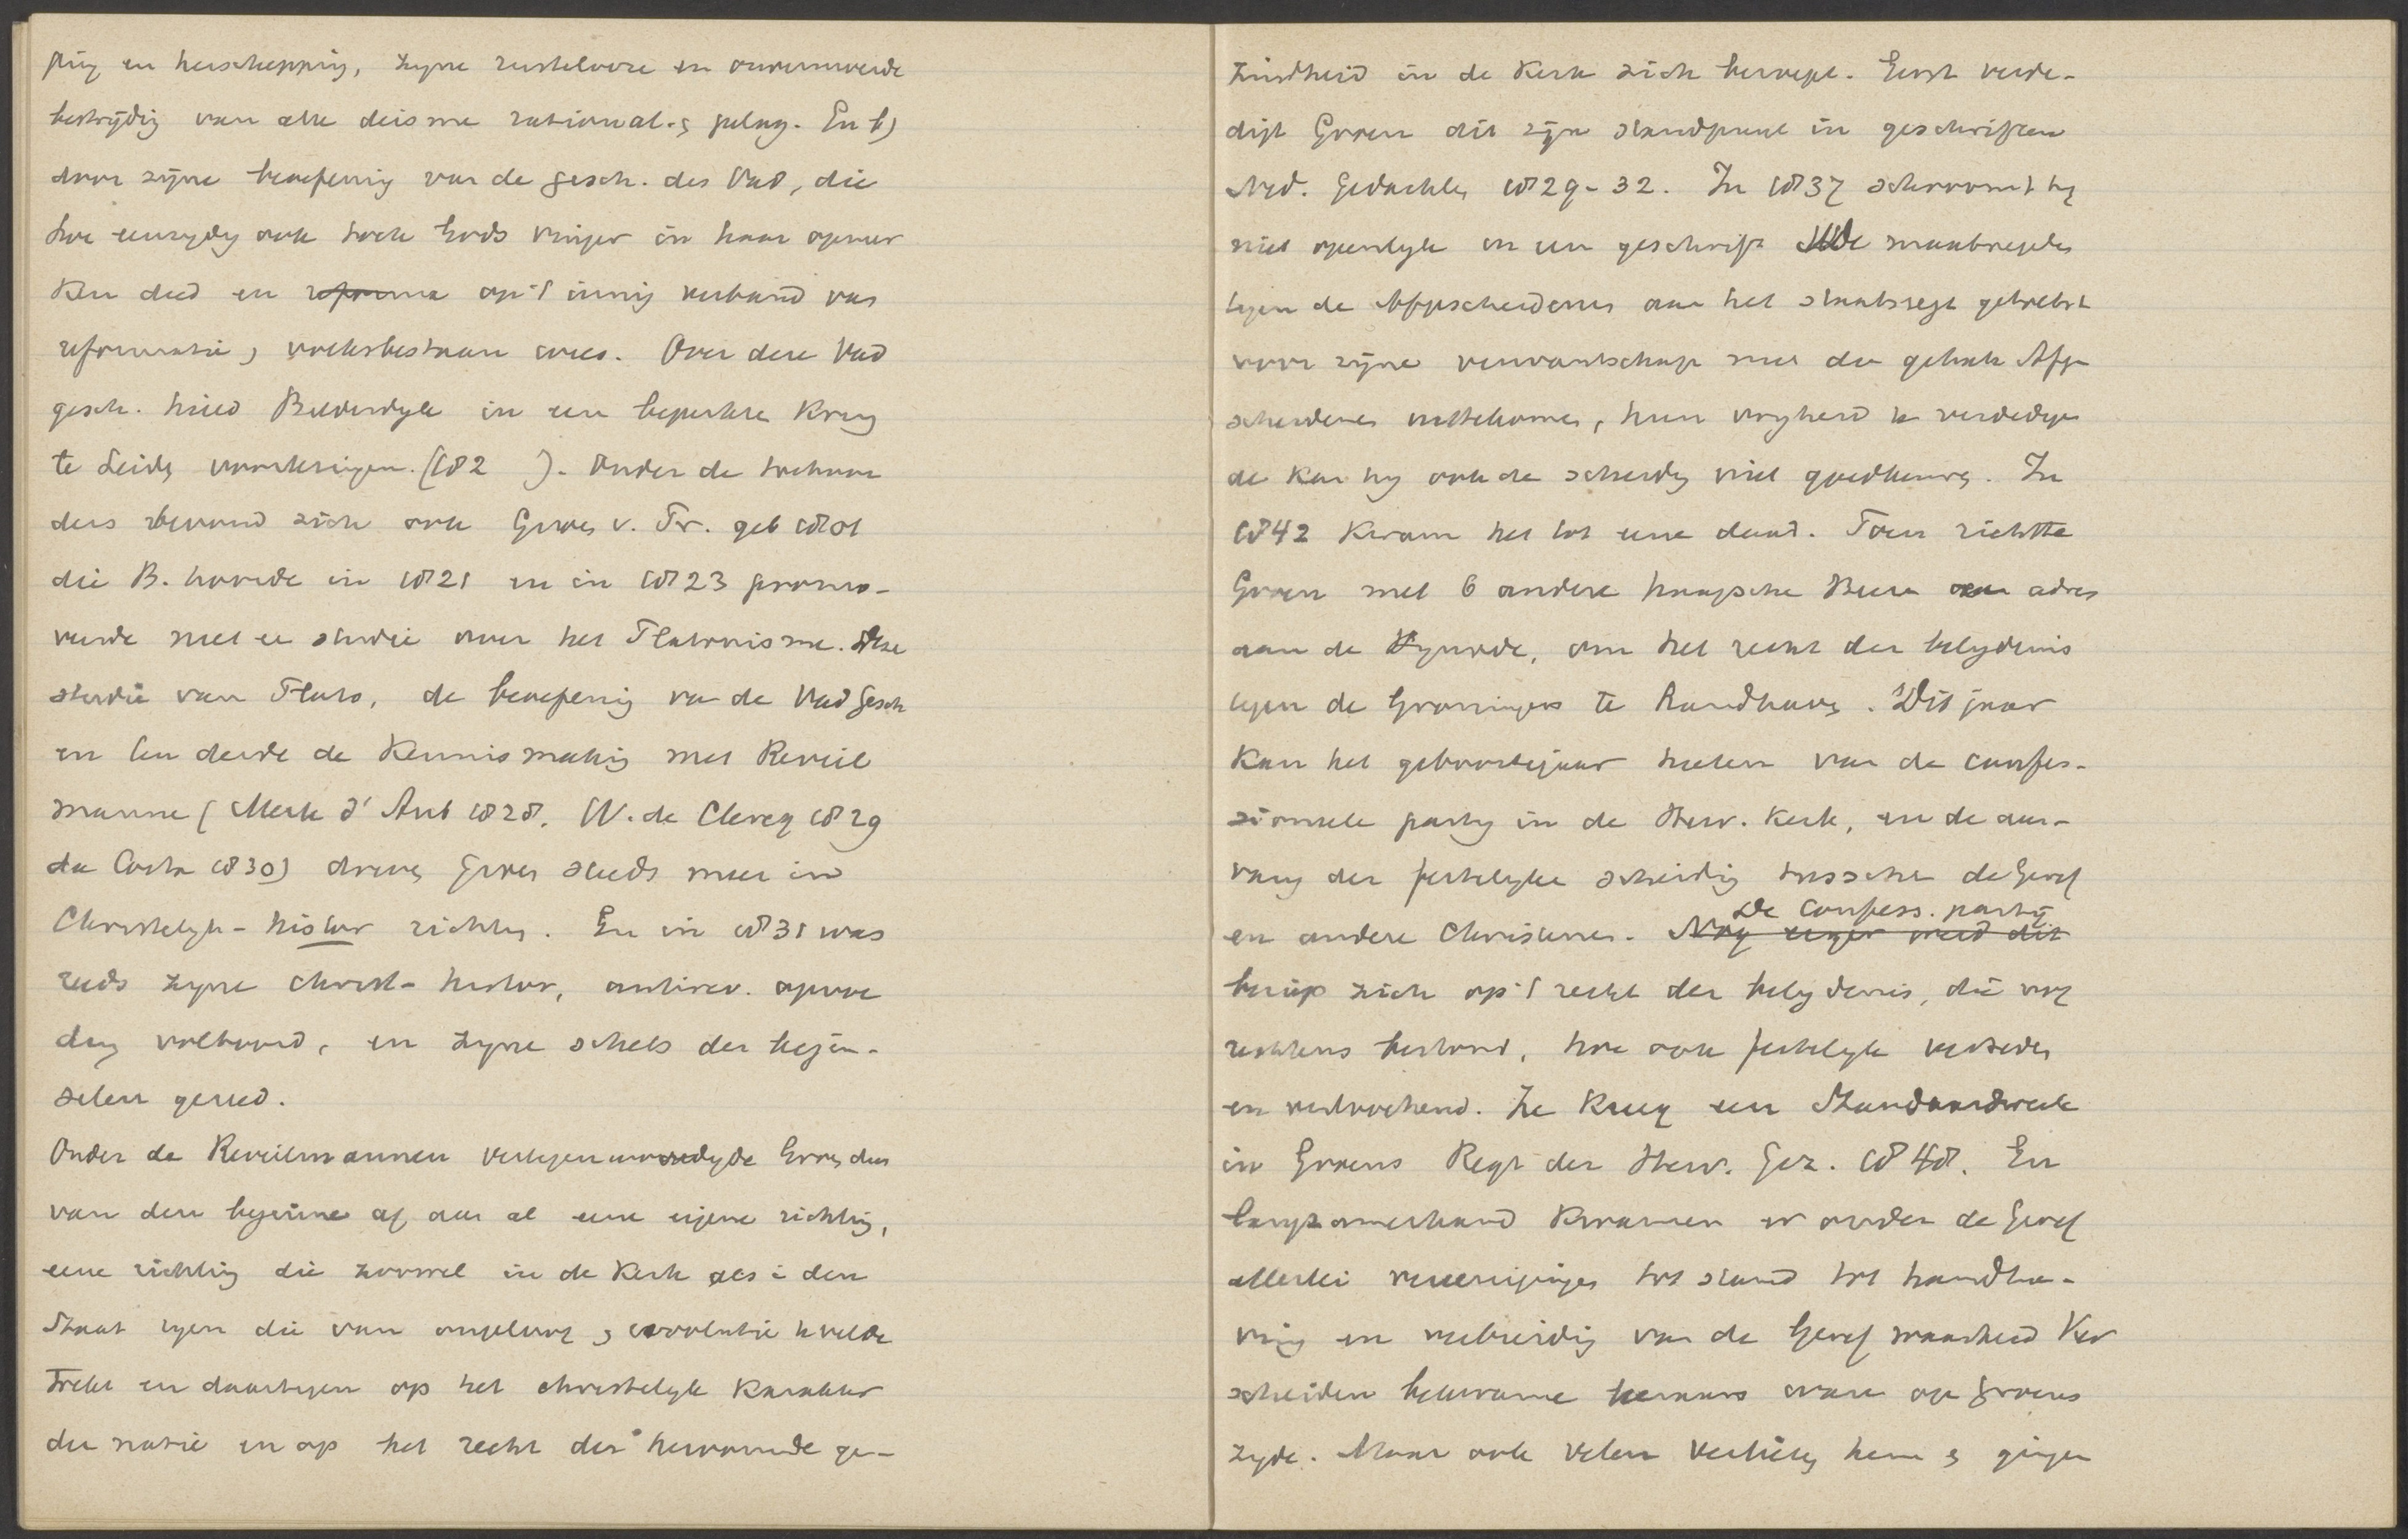 ping en herschepping, zyne rustelooze en onvermoeide
bestrijding van alle deisme rational. & pelag. En b)
door zijne beoefening van de gesch. des Vad, die
hoe eenzydig ook toch Gods vinger in haar opmer
ken deed en reforma op 't innig verband van
reformatie & volksbestaan wees. Over deze Vad
gesch. hield Bilderdyk in een beperkten Kring
te Leiden voorlezingen. (182 ). Onder de toehoor
ders bevond zich ook Groen v. Pr. geb 1801
die B. hoorde in 1821 en in 1823 promo-
veerde met ee studie over het Platonisme. Deze
studie van Plato, de beoefening va de Vad Gesch
en ten derde de Kennismaking met Reveil
manne (Merle d'Aub 1828, W. de Clercq 1829
da Costa 1830) dreven Groen steeds meer in
Christelyk-histor richting. En in 1831 was
reeds zyne christ-histor, antirev. opvoe
ding voltooid, en zyne schets der begin-
selen gereed.
Onder de Reveilmannen vertegenwoordigde Groen dus
van den beginne af aan al eene eigene richting,
eene richting die zoowel in de Kerk als i den
Staat tegen die van ongeloof & revolutie te velde
trekt en daartegen op het christelyk Karakter
der natie en op het recht der hervormde ge-
zindheid in de Kerk zich beroept. Eerst verde-
digt Groen dit zijn standpunt in geschriften
Ned. Gedachten 1829-32. In 1837 schroomt hy
niet openlyk in een geschrift de maatregelen
tegen de Afgescheidenen aan het staatsregt getoetst
voor zijne verwantschap met de gehate Afge
scheidenen uittekomen, hun vryheid te verdedigen
al kan hy ook de scheiding niet goedkeuren. In
1842 Kwam het tot eene daad. Toen richtte
Groen met 6 andere haagsche Heeren een adres
aan de Synode, om het recht der belydenis
tegen de Groningers te handhaven. Dit jaar
Kan het geboortejaar heeten van de confes-
sioneele party in de Herv. Kerk, en de aan-
vang der feitelyke scheiding tusschen de Geref
De Confess. partij
en andere Christenen. Nog enger werd dit
beriep zich op 't recht der belydenis, die nog
rechtens bestond, hoe ook feitelyk vertreden
en verloochend. Ze Kreeg een Standaardwerk
in Groens Regt der Herv. Gez. 1848. En
langzamerhand Kwamen er onder de Geref
allerlei vereenigingen tot stand tot handha-
ving en verbreiding van de Geref waarheid Ver
scheiden bekwame leeraars waren op Groens
zyde. Maar ook velen verlieten hem & gingen